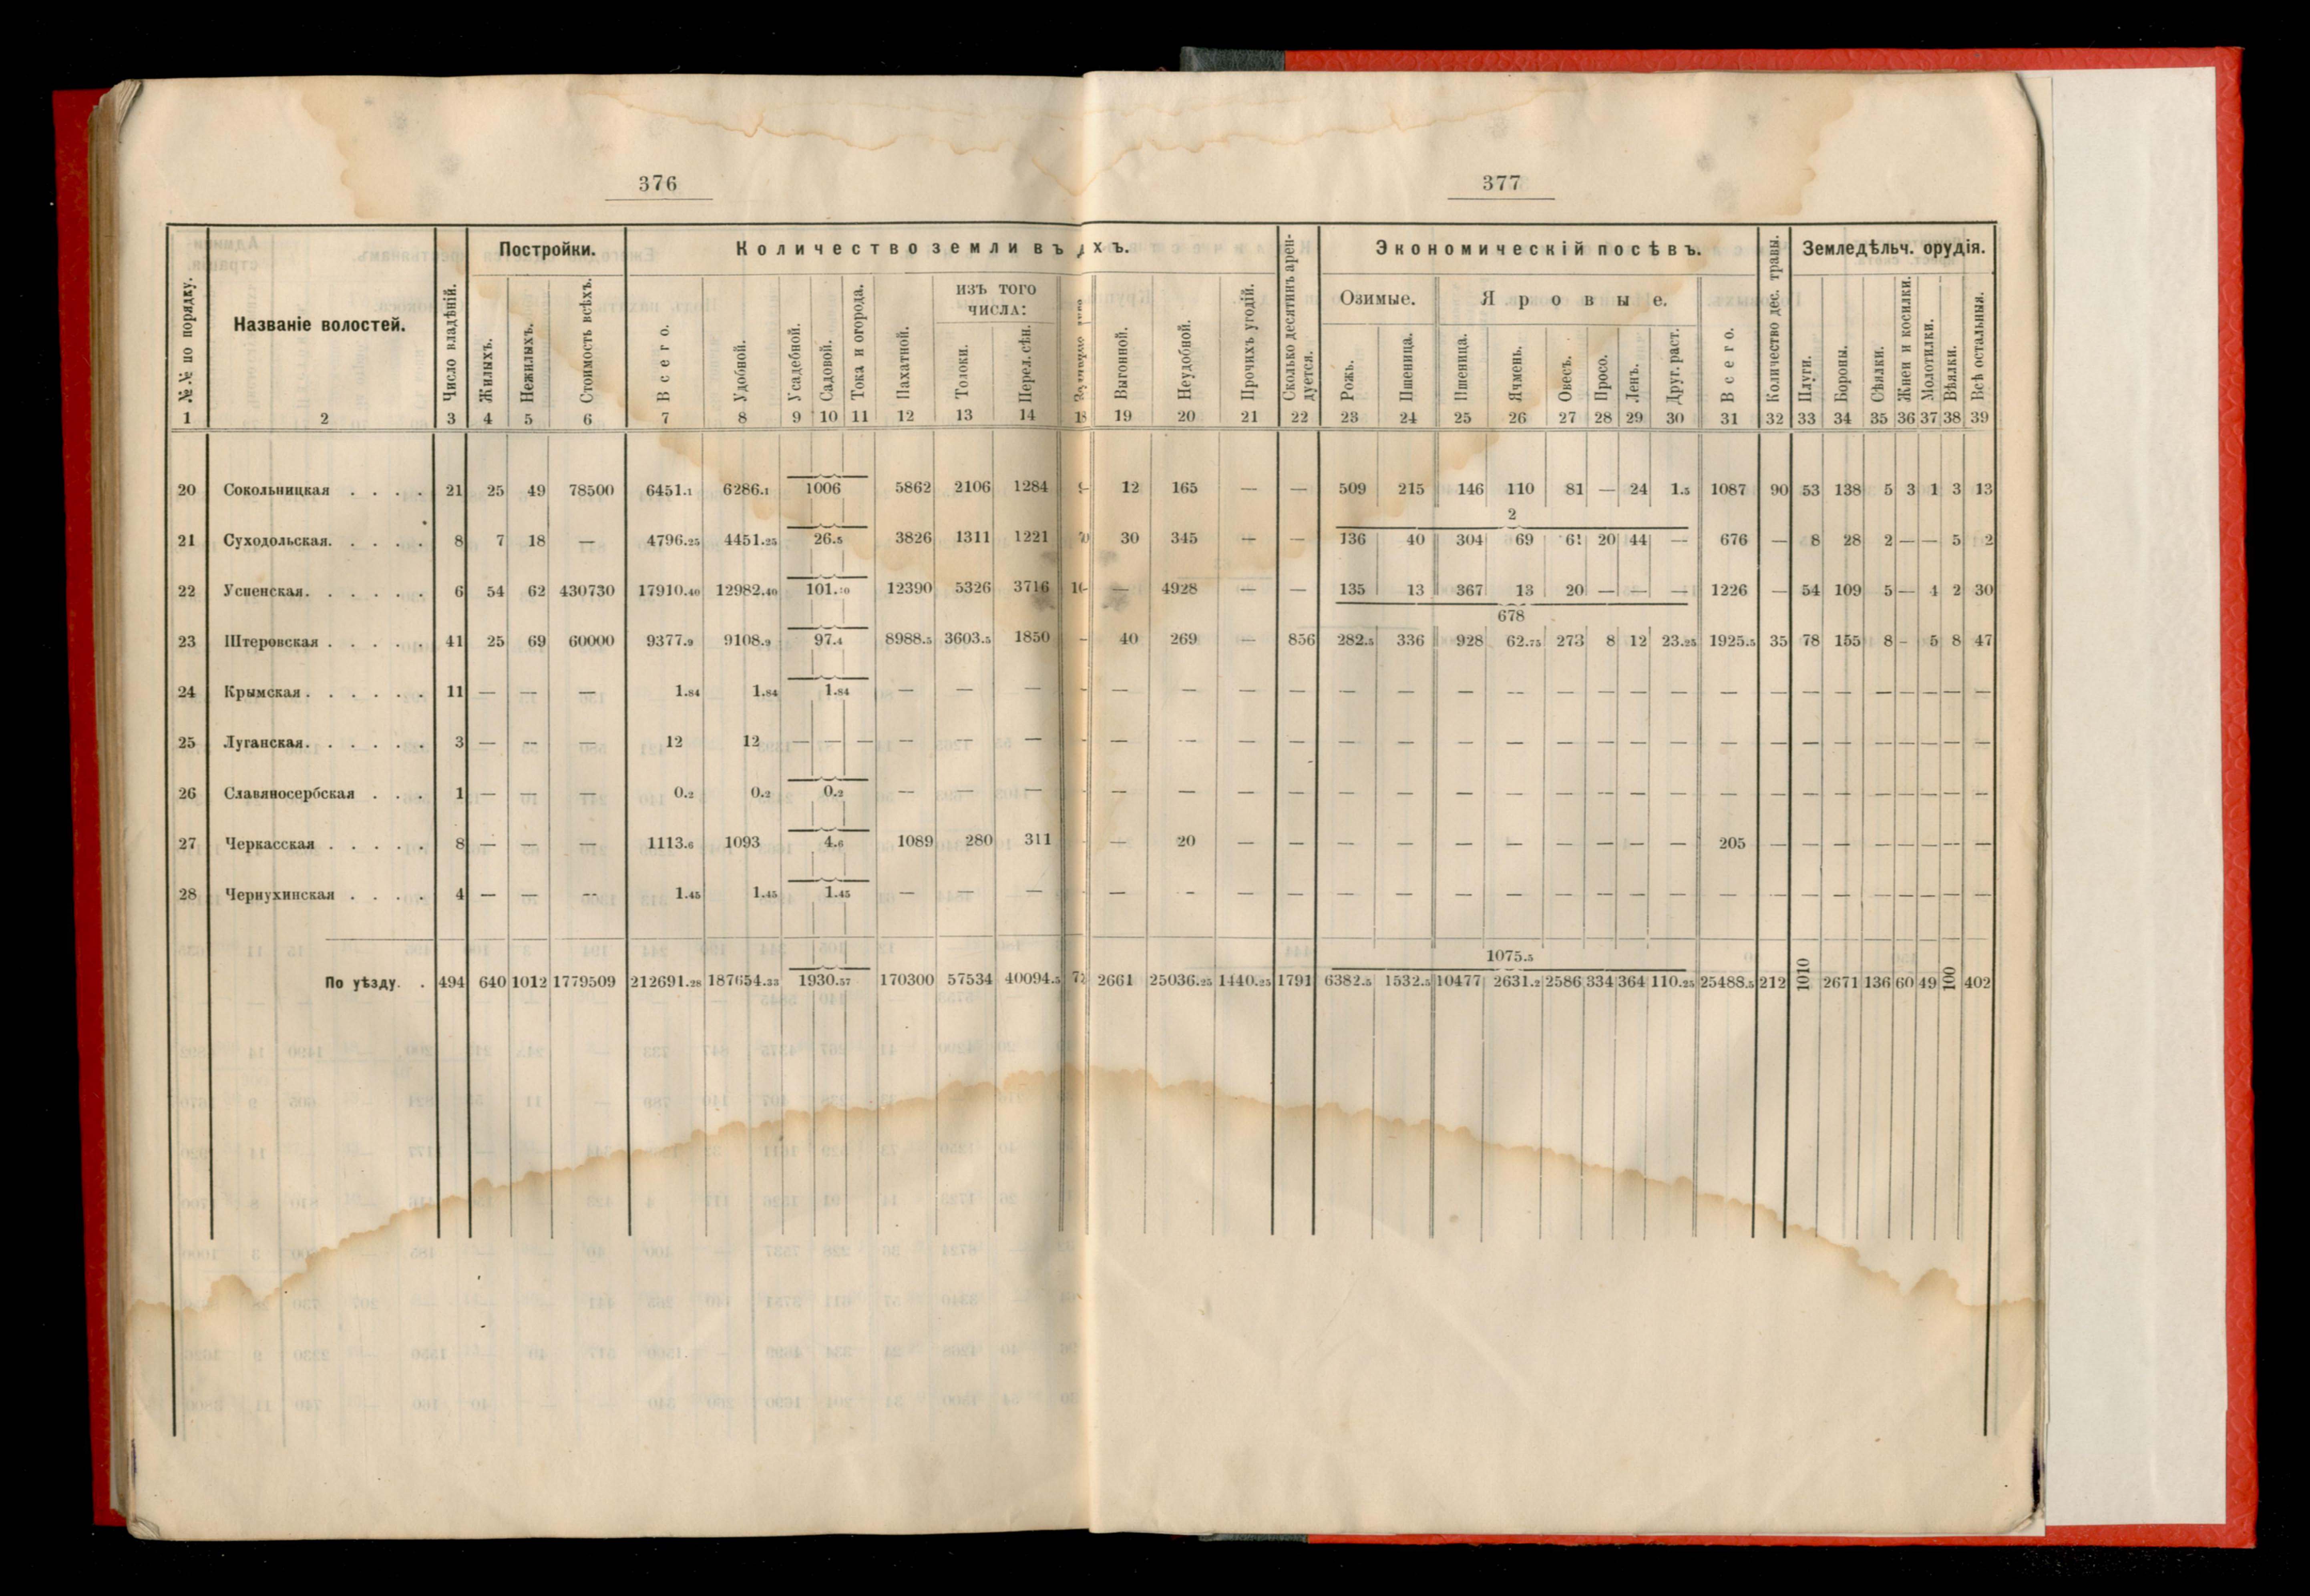 376
377
№№ по порядку.
Названіе волостей.
Число владѣній.
Постройки.
Жилыхъ.
Нежилыхъ.
Стоимость всѣхъ.
Количество земли въ
хъ.
Всего.
Удобной.
Усадебной.
Садовой.
Тока и огорода.
Пахатной.
изъ того
числа:
Толоки.
Перел.сѣн.
Выгонной.
Неудобной.
Прочихъ угодій.
Сколько десятинъ арен-
дуется.
Экономическій посѣвъ.
Озимые.
Яровые.
Рожь.
Пшеница.
Пшеница.
Ячмень.
Овесъ.
Просо.
Ленъ.
Друг. раст.
Всего.
Количество дес. травы.
Земледѣльч. орудія.
Плуги.
Бороны.
Сѣялки.
Жнеи и косилки.
Молотилки.
Вѣялки.
Всѣ остальныя.
1 2 3 4 5 6 7 8 9 10 11 12 13 14 19 20 21 22 23 24 25 26 27 28 29 30 31 32 33 34 35 36 37 38 39
20 Сокольницкая . . . . 21 25 49 78500 6451.1 6286.1 1006 5862 2106 1284 12 165 — — 509 215 146 110 81 — 24 1.5 1087 90 53 138 5 3 1 3 13
2
21 Суходольская. . . . . 8 7 18 — 4796.25 4451.25 26.5 3826 1311 1221 30 345 — — 136 40 304 69 61 20 44 — 676 — 8 28 2 — — 5 2
22 Успенская. . . . . . 6 54 62 430730 17910.40 12982.40 101. 12390 5326 3716 — 4928 — — 135 13 367 13 20 — — — 1226 — 54 109 5 — 4 2 30
678
23 Штеровская . . . . . 41 25 69 60000 9377.9 9108.9 97.4 8988.5 3603.5 1850 - 40 269 — 856 282.5 336 928 62.75 273 8 12 23.25 1925.5 35 78 155 8 - 5 8 47
24 Крымская . . . . . . 11 — — — 1.84 1.84 1.84 — — — - — — — — — — — — — — — — — — — — — — — — —
25 Луганская. . . . . . 3 — — — 12 12 — — — — — — - — — — — — — — — — — — — — — — — — — — — —
26 Славяносербская . . . 1 — — — 0.2 0.2 0.2 — — — - — — — — — — — — — — — — — — — — — — — — —
27 Черкасская . . . . . 8 — — — 1113.6 1093 4.6 1089 280 311 - — 20 — — — — — — — — — — 205 — — — — — — — —
28 Чернухинская . . . . 4 — — — 1.45 1.45 1.45 — — — - — — — — — — — — — — — — — — — — — — — — —
1075.5
По уѣзду. . 494 640 1012 1779509 212691.28 187654.33 1930.57 170300 57534 40094.5 2661 25036.25 1440.25 1791 6382.5 1532.5 10477 2631.2 2586 334 364 110.25 25488.5 212 1010 2671 136 60 49 100 402